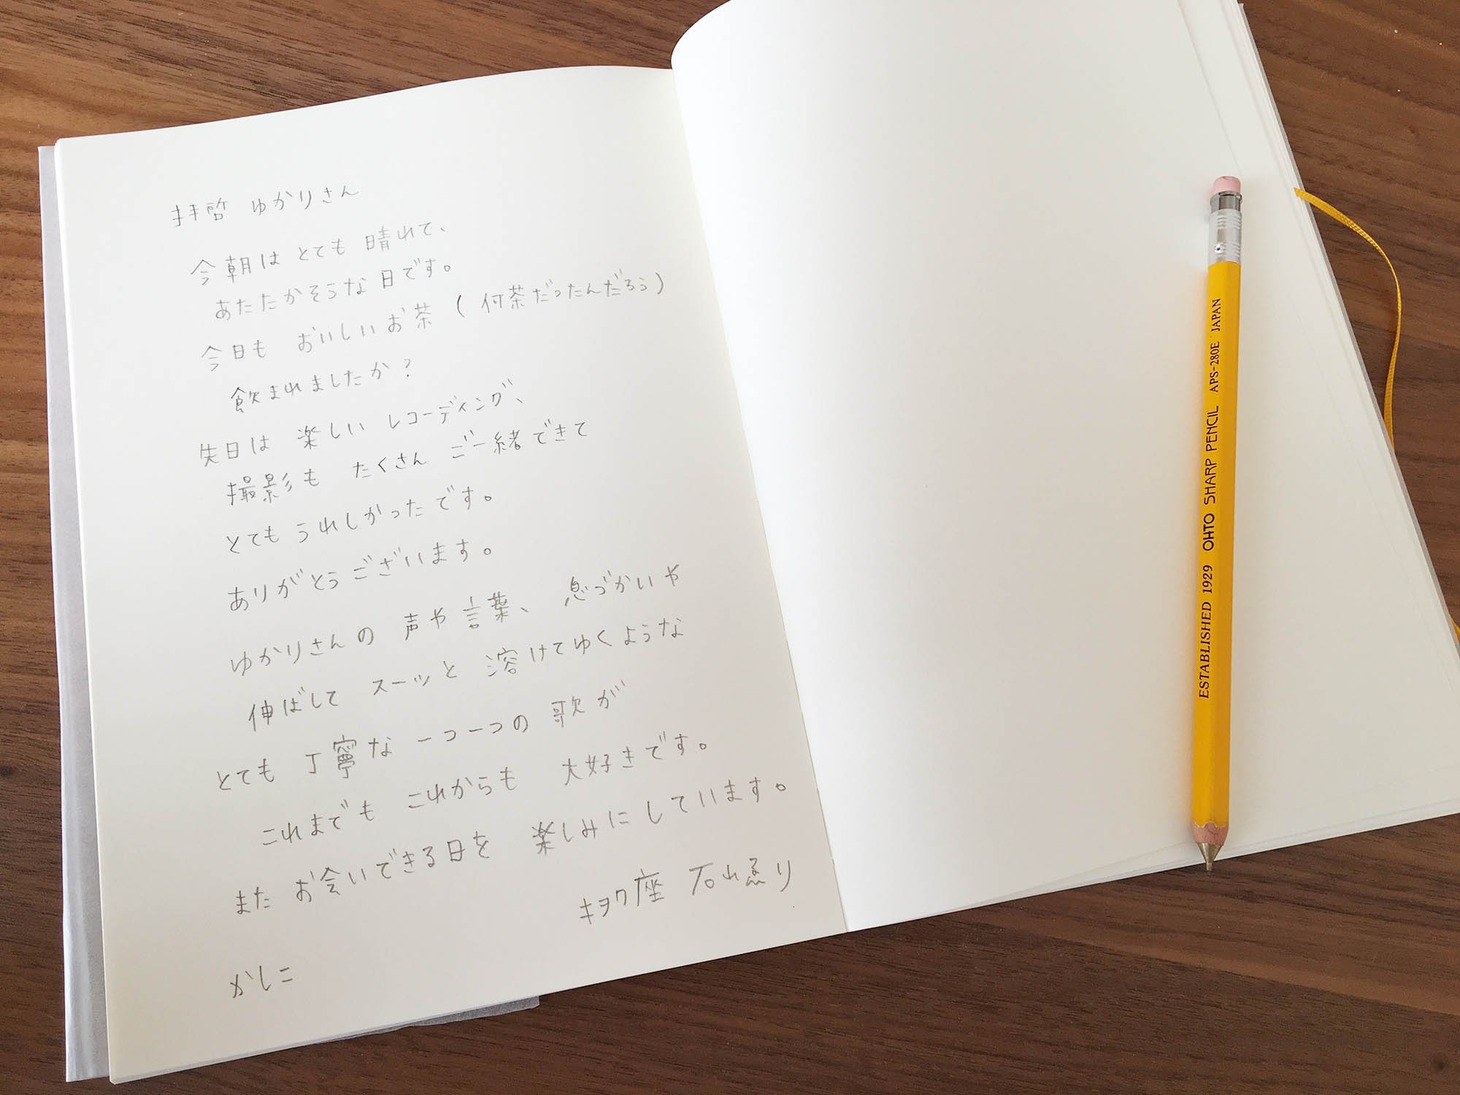 拝啓 ゆかりさん
今朝は とても 晴れて、
あたたかそうな日です。
今日も おいしいお茶 (何茶だったんだろう)
飲まれましたか?
先日は 楽しい レコーディング、
撮影も たくさん ご一緒できて
とてもうれしかったです。
ありがとうございます。
ゆかりさんの 声や言葉、 息づかいや
伸ばして スーッと 溶けてゆくような
とても 丁寧な 一つ一つの 歌が
これまでも これからも 大好きです。
また お会いできる日を 楽しみにしています。
キヲク座
かしこ
ESTABLISHED 1929 OHTO SHARP PENCIL APS-280E JAPAN